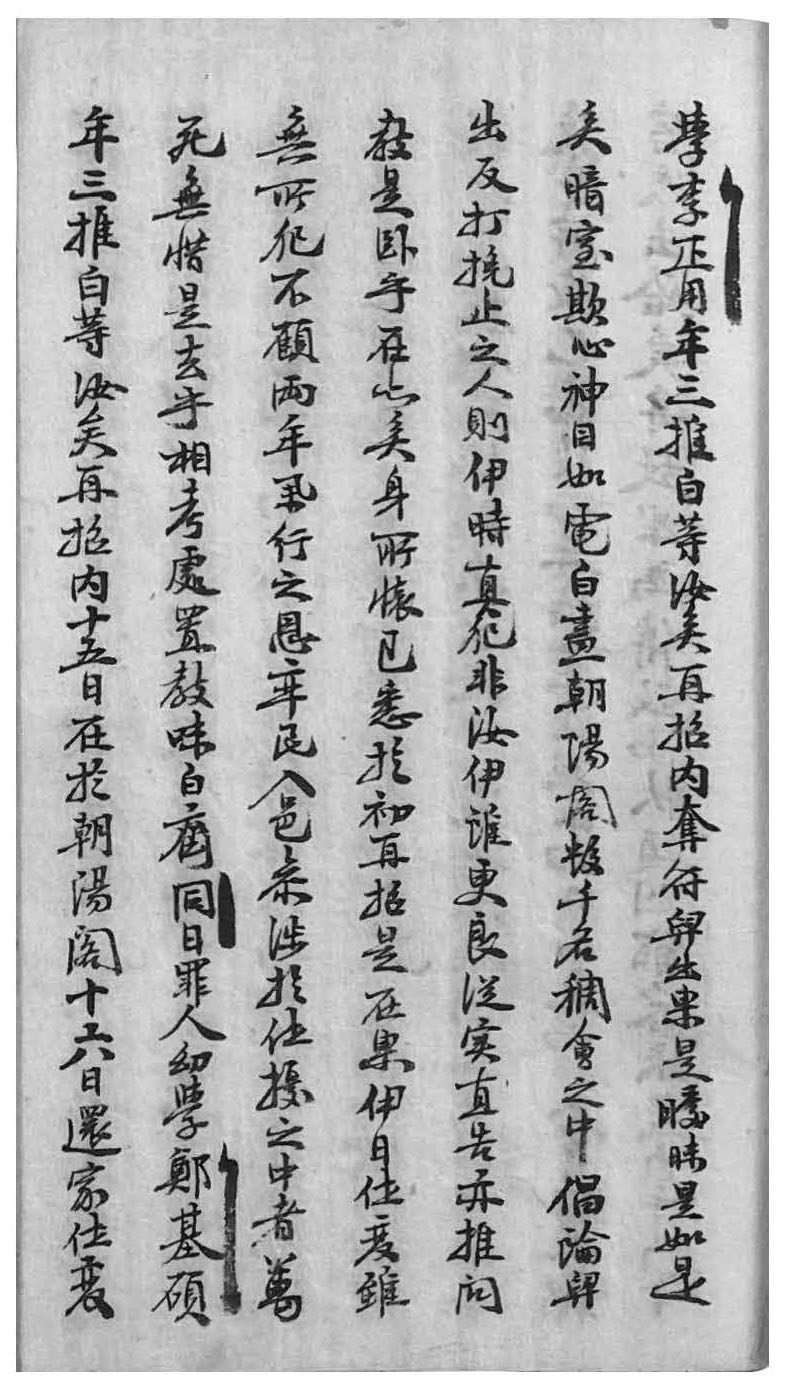 學李正用年三推白等汝矣再招內奪符舁出果是曖昧是如是
矣暗室欺心神目如電白晝朝陽閣數千名稠會之中倡論舁
出反打挽止之人則伊時真犯非汝伊誰更良從實直告亦推問
教是臥乎在亦矣身所懷已悉於初再招是在果伊日作變雖
無所犯不顧兩年風行之恩率民入邑參涉於作擾之中者萬
死無惜是去乎相考處置教味白齊同日罪人幼學鄭基碩
年三推白等汝矣再招內十五日在於朝陽閣十六日還家作變